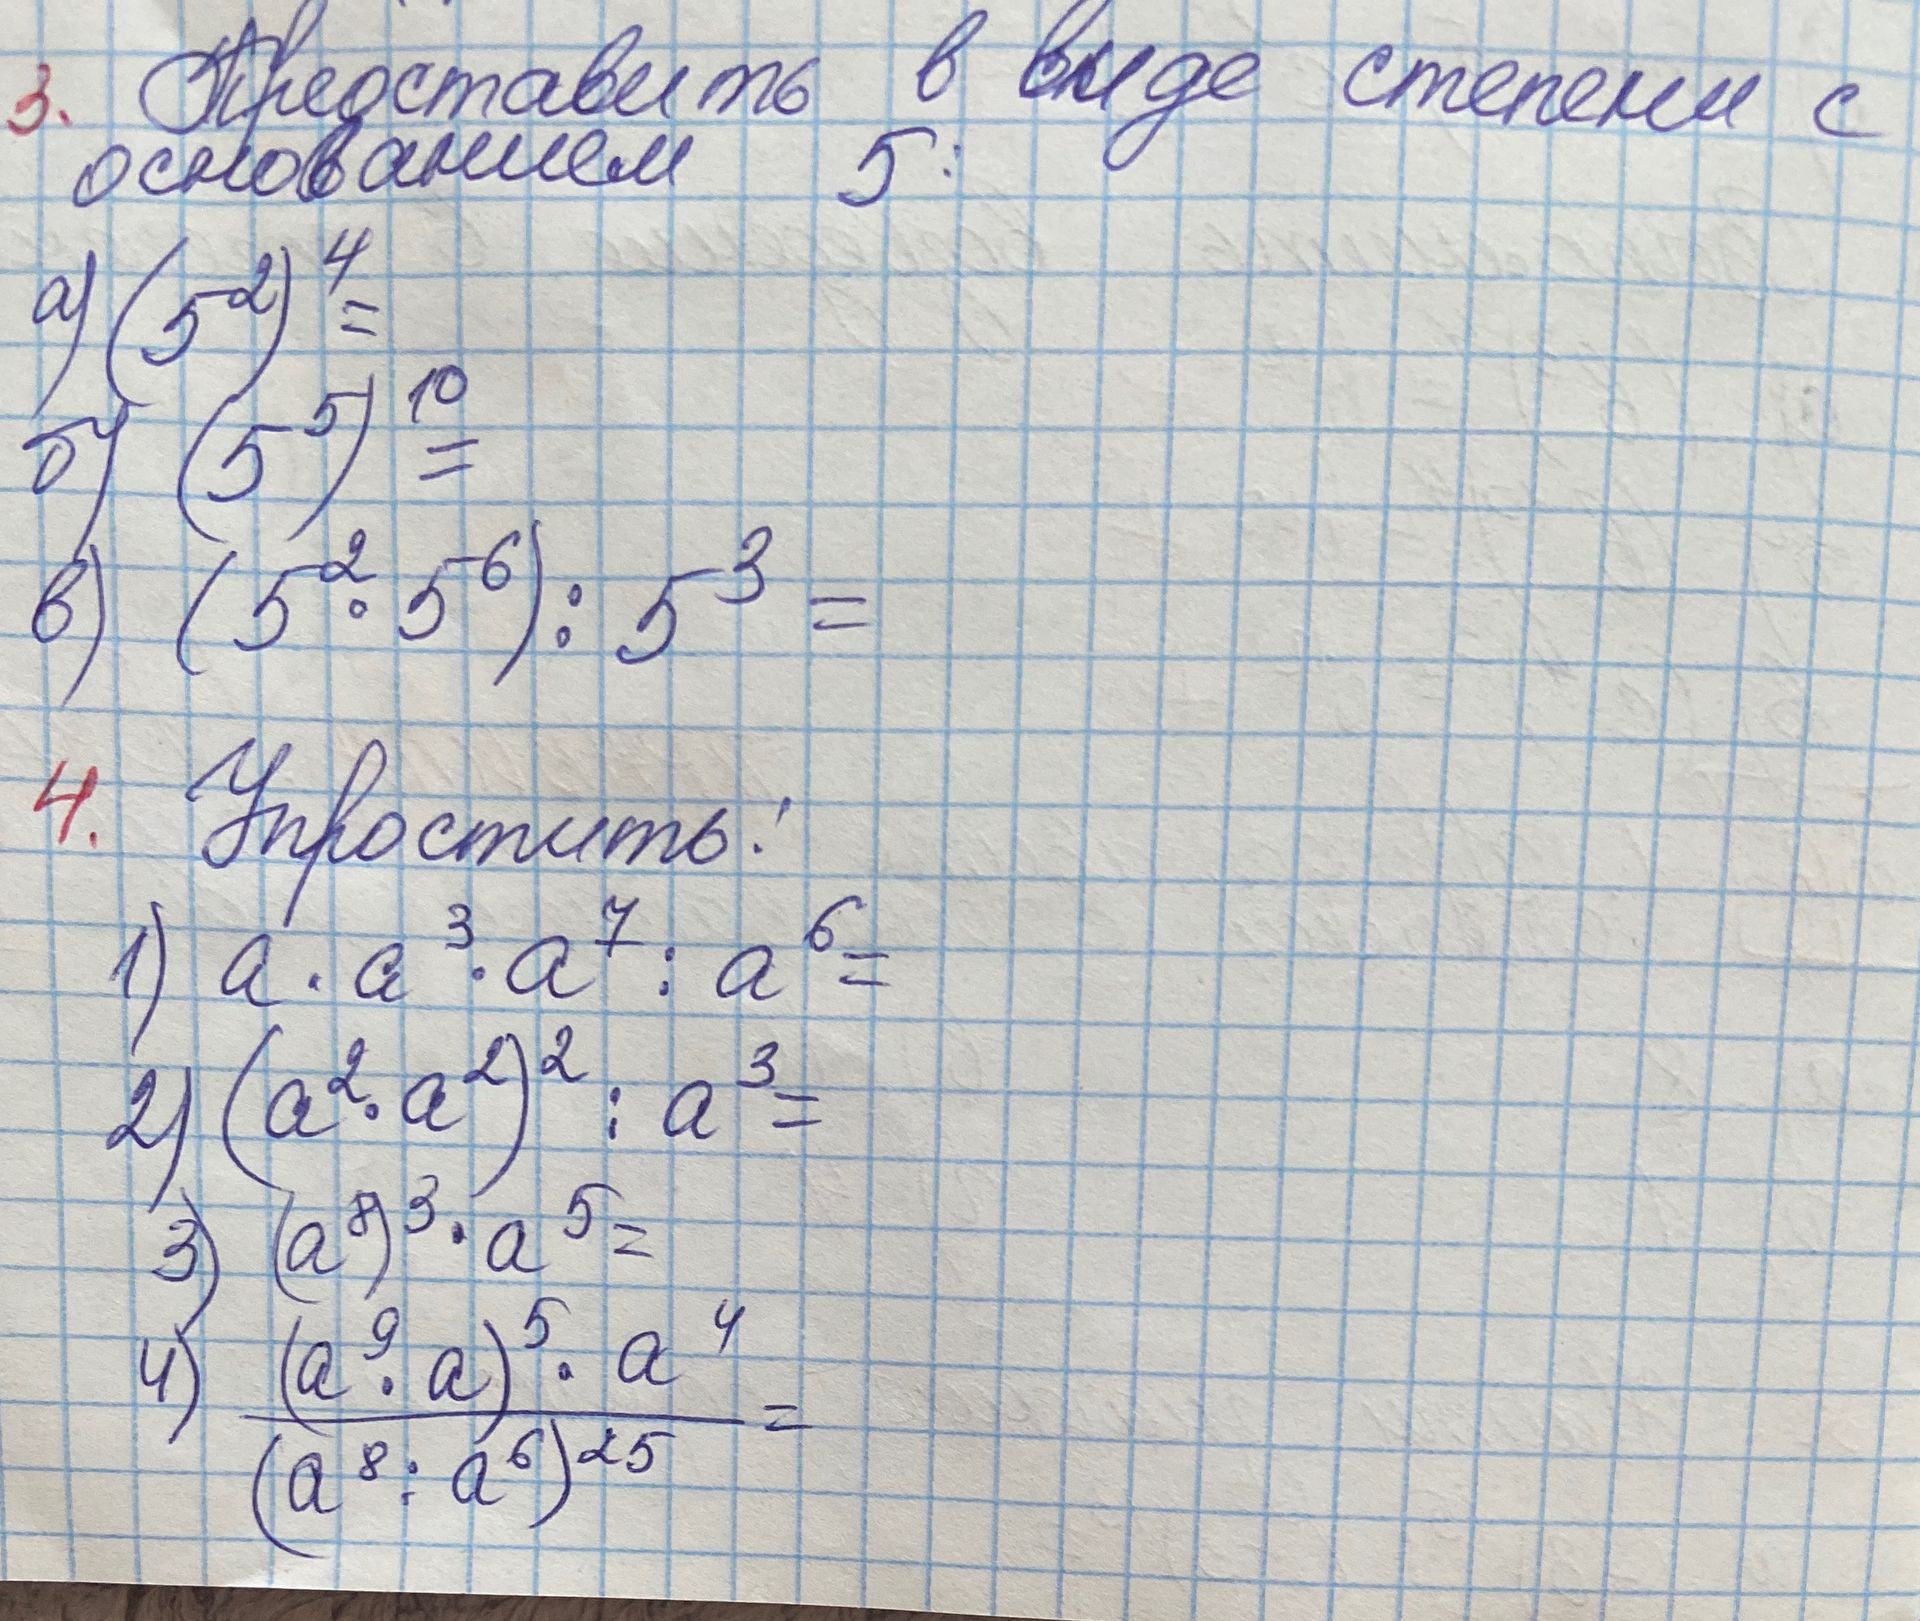 3. Представить в виде степени с
основанием 5:
а) (5²)⁴ =
б) (5⁵)¹⁰ =
в) (5² · 5⁶) : 5³ =
4. Упростить:
1) a · a³ · a⁷ : a⁶ =
2) (a² · a²)² : a³ =
3) (a⁸)³ · a⁵ =
4) (a⁹ · a)⁵ · a⁴ =
(a⁸ : a⁶)²⁵